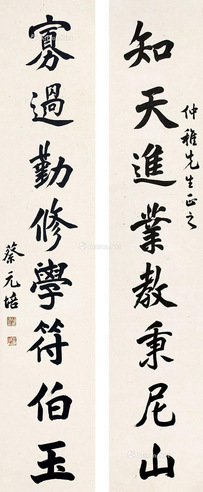 知天進業教秉尼山
仲雅先生正之
寡過勤修學符伯玉
蔡元培